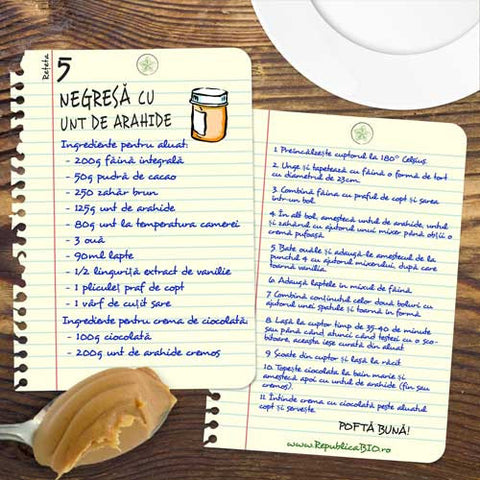 Rețeta
5
NEGRESĂ CU
UNT DE ARAHIDE
Ingrediente pentru aluat:
- 200g făină integrală
- 50g pudră de cacao
- 250 zahăr brun
- 125g unt de arahide
- 80g unt la temperatura camerei
- 3 ouă
- 90ml lapte
- 1/2 linguriță extract de vanilie
- 1 pliculeț praf de copt
- 1 vârf de cuțit sare
Ingrediente pentru crema de ciocolată:
- 100g ciocolată
- 200g unt de arahide cremos
1. Preîncălzește cuptorul la 180° Celsius.
2. Unge și tapetează cu făină o formă de tort
cu diametrul de 23cm.
3. Combină făina cu praful de copt și sarea
într-un bol.
4. În alt bol, amestecă untul de arahide, untul
și zahărul cu ajutorul unui mixer până obții o
cremă pufoasă.
5. Bate ouăle și adaugă-le amestecul de la
punctul 4 cu ajutorul mixerului, după care
toarnă vanilia.
6. Adaugă laptele în mixul de făină.
7. Combină conținutul celor două boluri cu
ajutorul unei spatule și toarnă în formă.
8. Lasă la cuptor timp de 35-40 de minute
sau până când atunci când testezi cu o sco-
bitoare, aceasta iese curată din aluat.
9. Scoate din cuptor și lasă la răcit.
10. Topește ciocolata la bain marie și
amestecă apoi cu untul de arahide (fin sau
cremos).
11. Întinde crema cu ciocolată peste aluatul
copt și servește.
POFTĂ BUNĂ!
www.RepublicaBIO.ro